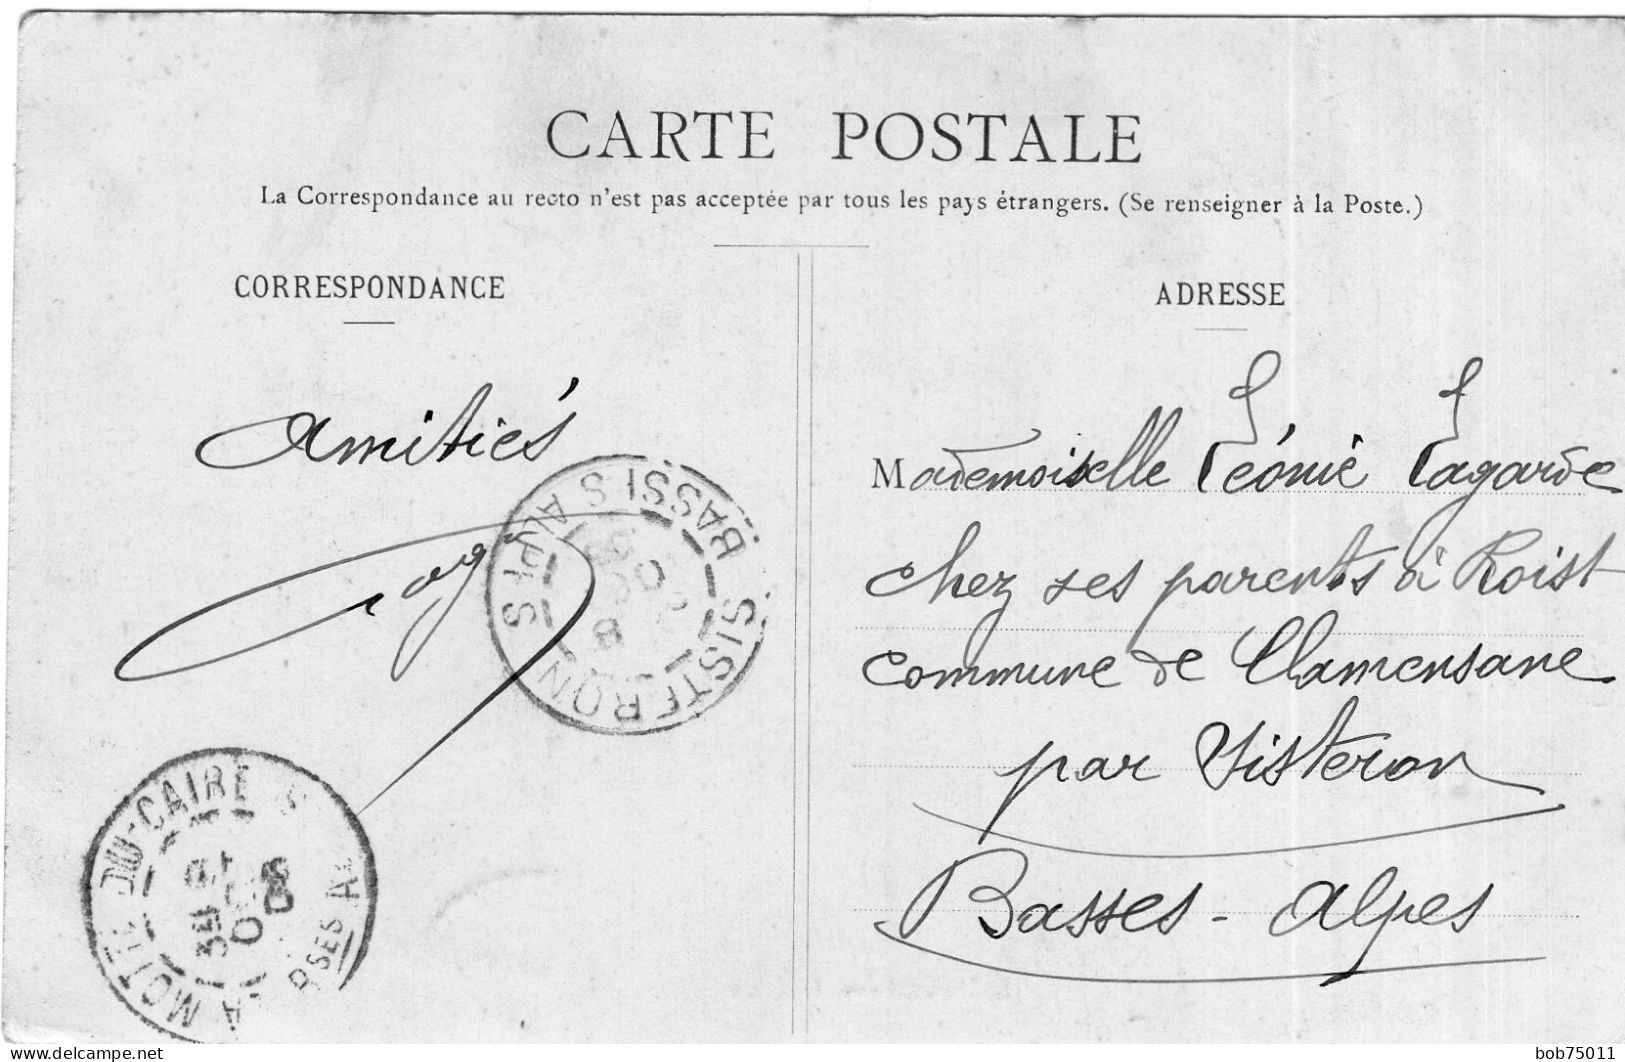 CARTE POSTALE
La Correspondance au recto n'est pas acceptée par tous les pays étrangers. (Se renseigner à la Poste.)
CORRESPONDANCE
Amitiés
ADRESSE
Mademoiselle Léonie Lagarde
chez ses parents à Roist
commune de Clamensane
par Sisteron
Basses-Alpes
SISTERON BASSES ALPES
LA MOTTE DU-CAIRE
delcampe.net
bob75011